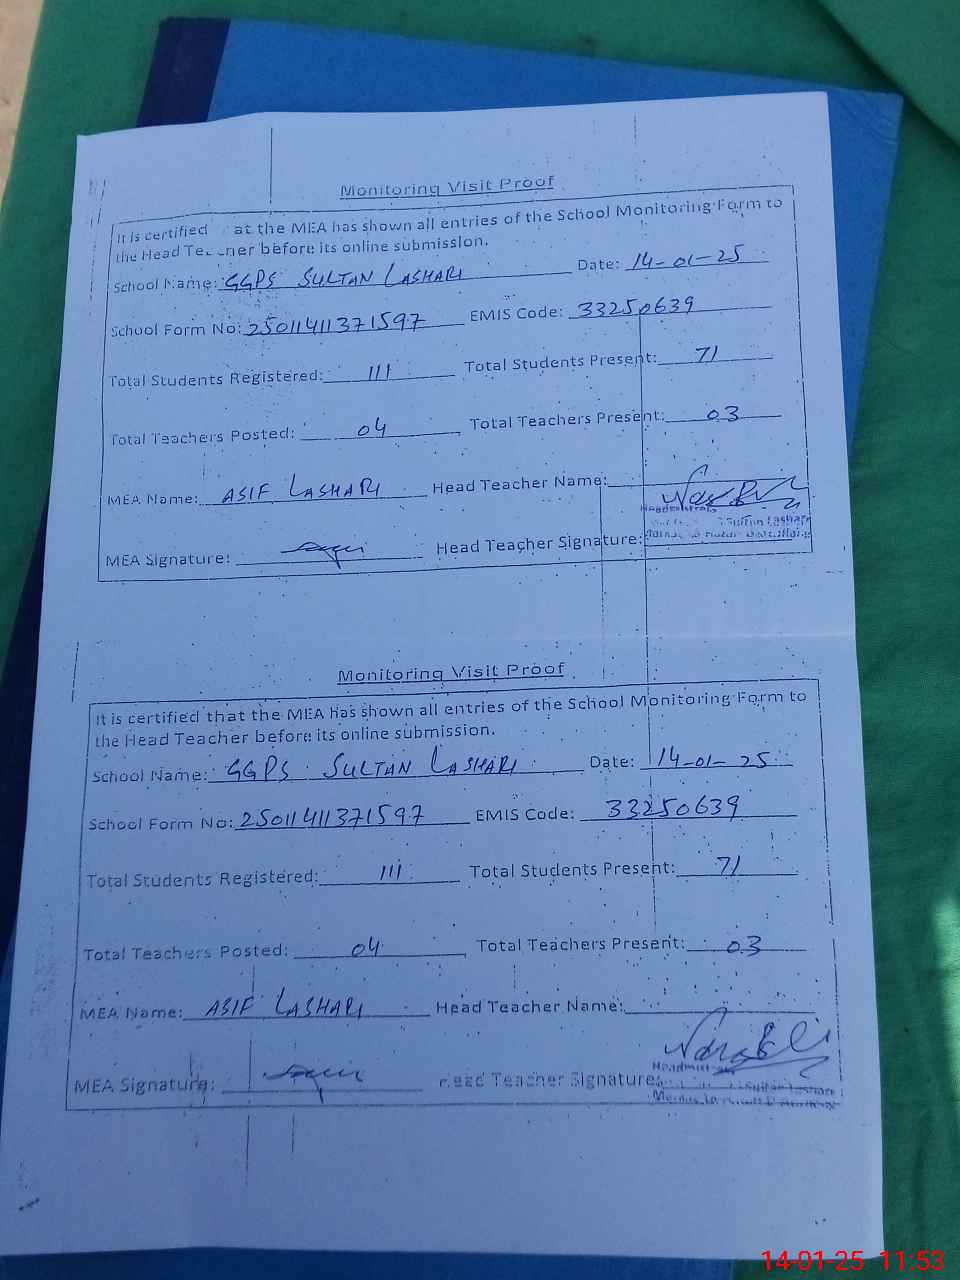 Monitoring Visit Proof
It is certified at the MEA has shown all entries of the School Monitoring Form to
the Head Teacher before its online submission.
School Name: GGPS SULTAN LASHARI Date: 14-01-25
School Form No: 25011411371597 EMIS Code: 33250639
Total Students Registered: 111 Total Students Present: 71
Total Teachers Posted: 04 Total Teachers Present: 03
MEA Name: ASIF LASHARI Head Teacher Name:
Headmistress
Sultan Lashari
MEA Signature: Head Teacher Signature:
Monitoring Visit Proof
It is certified that the MEA has shown all entries of the School Monitoring Form to
the Head Teacher before its online submission.
School Name: GGPS SULTAN LASHARI Date: 14-01-25
School Form No: 25011411371597 EMIS Code: 33250639
Total Students Registered: 111 Total Students Present: 71
Total Teachers Posted: 04 Total Teachers Present: 03
MEA Name: ASIF LASHARI Head Teacher Name:
Headmistress
MEA Signature: Head Teacher Signature: Sultan Lashari
14-01-25 11:53